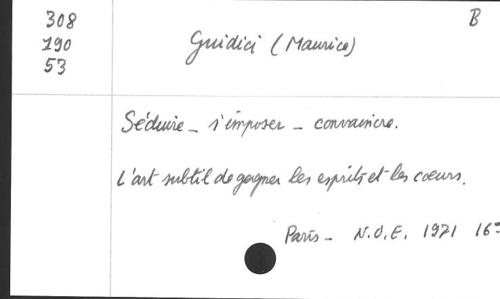 308
190
53
B
Guidici (Maurice)
Séduire - s'imposer - convaincre.
L'art subtil de gagner les esprits et les coeurs.
Paris - N.O.E. 1971 16°